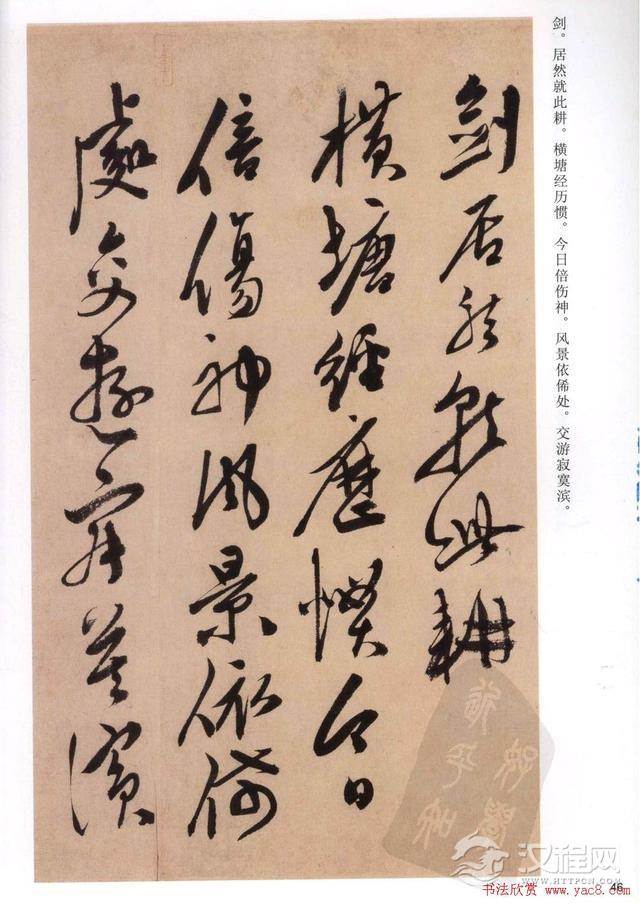 剑。居然就此耕。横塘经历惯。今日倍伤神。风景依俙处。交游寂寞滨。
劍居然就此耕
橫塘經歷慣今日
倍傷神風景依俙
處交遊寂寞濱
汉程网
WWW.HTTPCN.COM
46
书法欣赏 www.yac8.com